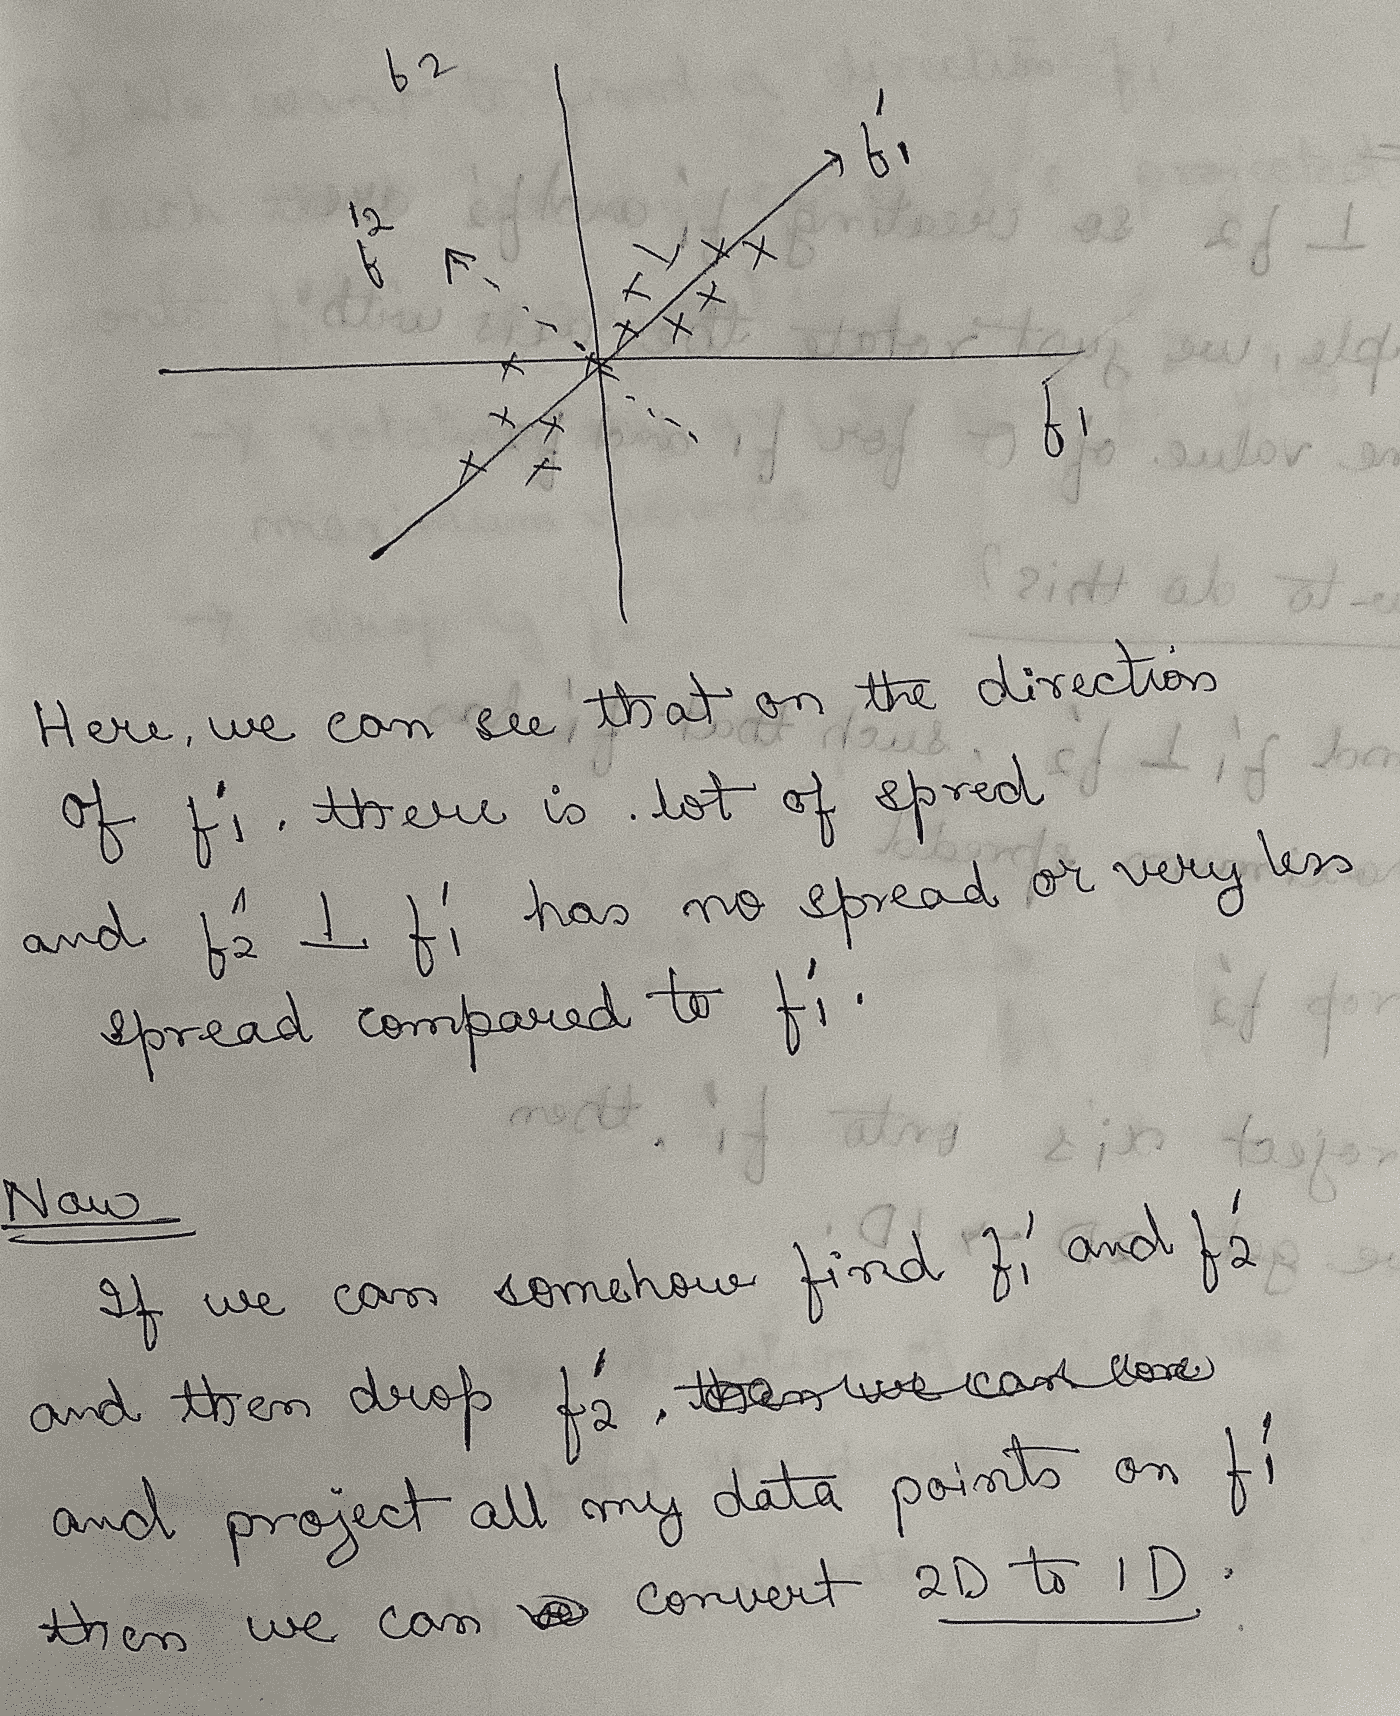 f2
f1'
f2'
f1
Here, we can see that on the direction
of f1', there is lot of spred
and f2' ⊥ f1' has no spread or very less
spread compared to f1'.
Now
If we can somehow find f1' and f2'
and then drop f2', then we can
and project all my data points on f1'
then we can convert 2D to 1D.